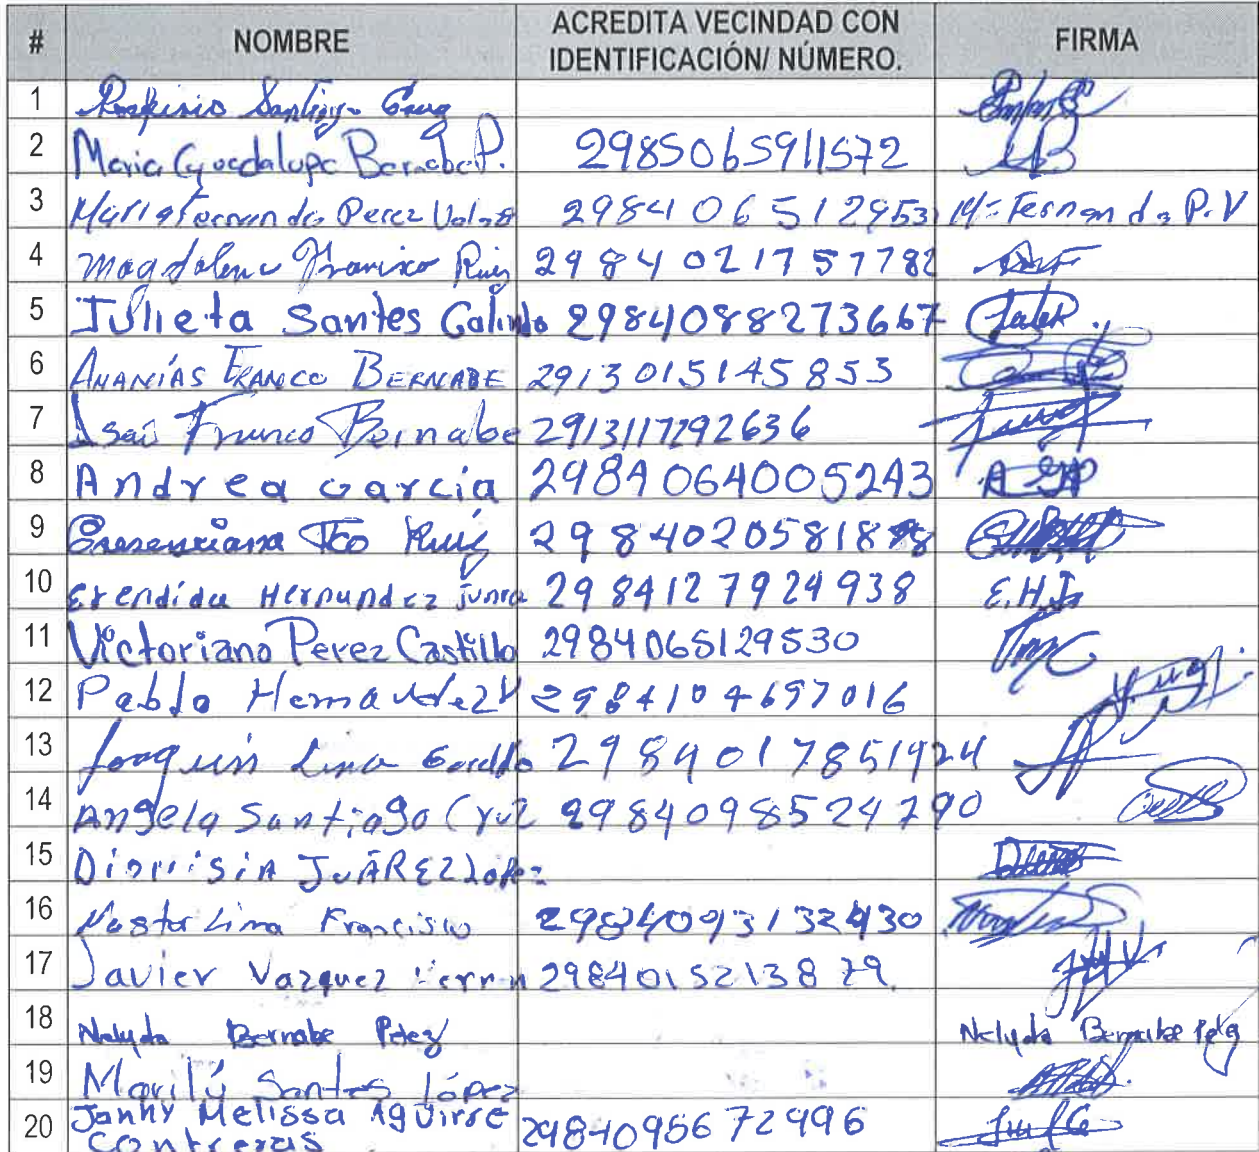 # NOMBRE ACREDITA VECINDAD CON IDENTIFICACIÓN/ NÚMERO. FIRMA
1 Porfirio Santiago Cruz
2 Maria Guadalupe Bernabe P. 2985065911572
3 Maria Fernanda Perez 298406512953 Mª Fernanda P.V
4 Magdalena Francisco Ruiz 2984021757782
5 Julieta Santes Galindo 2984088273667
6 ANANÍAS FRANCO BERNABE 2913015145853
7 Isaí Franco Bernabe 2913117292636
8 Andrea Garcia 2984064005243
9 Cresenciana Fco Ruiz
10 Erendida Hernandez 2984127924938 E.H.J.
11 Victoriano Perez Castillo 2984065129530
12 Pablo Hernandez V 2984104697016
13 Joaquin Lima 2984017851924
14 Angela Santiago Cruz 2984098524790
15 Dionisia JUÁREZ Lopez
16 Nestor Lima Francisco 2984093132430
17 Javier Vazquez 2984015213879
18 Nelyda Bernabe Perez Nelyda Bernabe
19 Marilú Santes López
20 Janhy Melissa Aguirre 2984095672996
Contreras